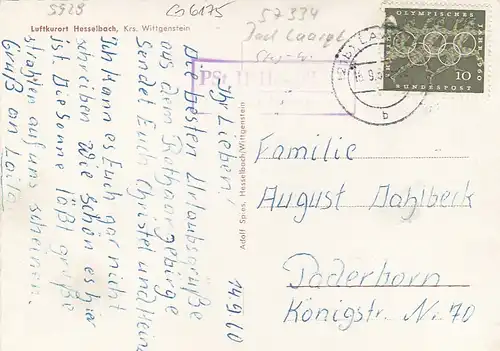 5929
G 6175
57334
Bad Laasphe
Luftkurort Hesselbach, Krs. Wittgenstein
14.9.60
Ihr Lieben!
Die besten Urlaubsgrüße
aus dem Rothaargebirge
sendet Euch Christel und Heinz
Ich kann es Euch gar nicht
schreiben wie schön es hier
ist. Die Sonne läßt grüße
strahlen auf uns scheinen.
Gruß an Laila
Adolf Spies, Hesselbach/Wittgenstein
OLYMPISCHES
JAHR 1960
10
DEUTSCHE
BUNDESPOST
b
Familie
August Dahlbeck
Paderborn
Königstr. Nr. 70